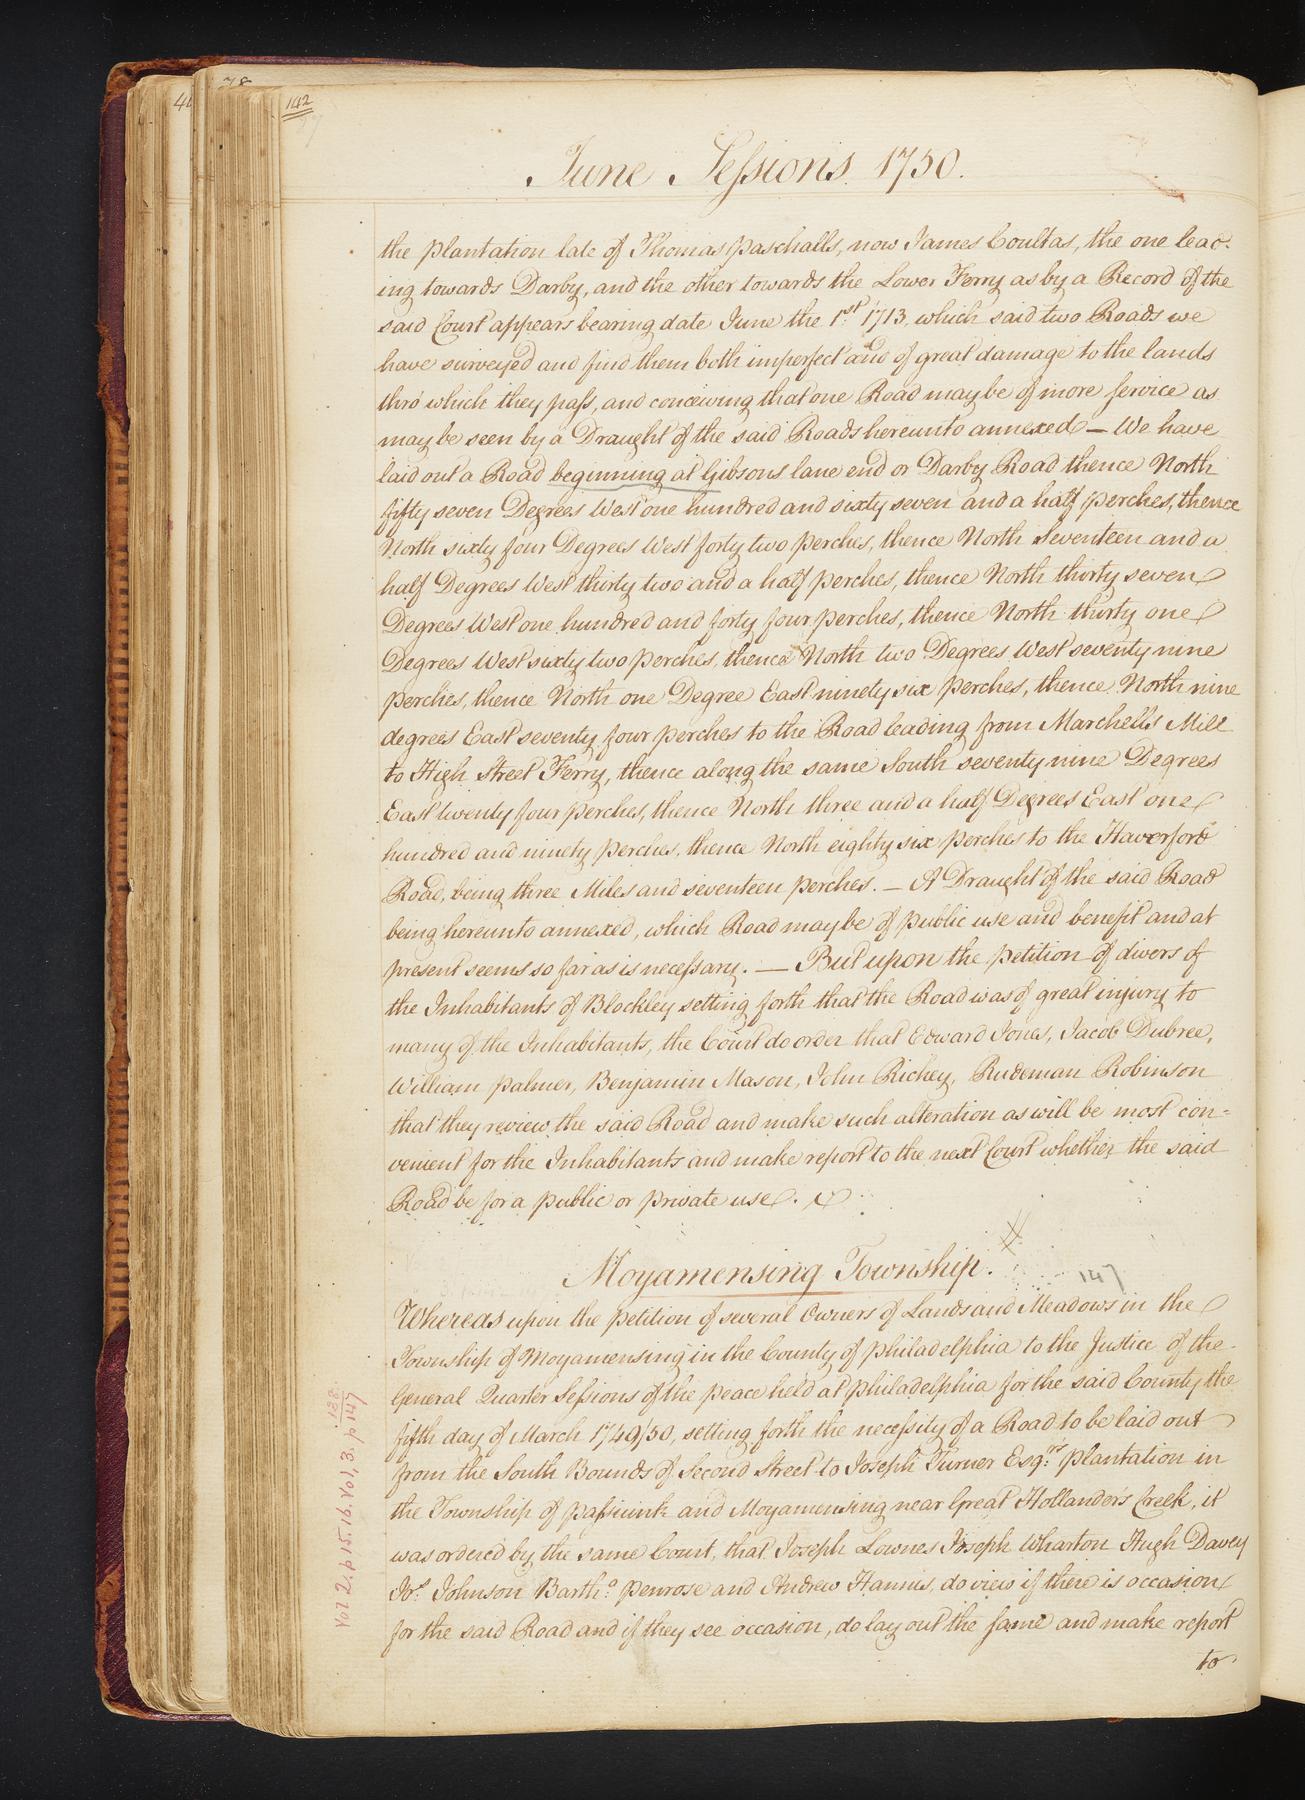 46
78
142
June Sessions 1750.
the plantation late of Thomas paschalls, now James Coultas, the one lead-
ing towards Darby, and the other towards the Lower Ferry as by a Record of the
said Court appears bearing date June the 1st 1713, which said two Roads we
have surveyed and find them both imperfect and of great damage to the lands
thro' which they pass, and conceiving that one Road may be of more service as
may be seen by a Draught of the said Roads hereunto annexed — We have
laid out a Road beginning at Gibsons lane end or Darby Road thence North
fifty seven Degrees West one hundred and sixty seven and a half perches, thence
North sixty four Degrees West forty two perches, thence North Seventeen and a
half Degrees West thirty two and a half perches, thence North thirty seven
Degrees West one hundred and forty four perches, thence North thirty one
Degrees West sixty two perches, thence North two Degrees West seventy nine
perches, thence North one Degree East ninety six perches, thence North nine
degrees East seventy four perches to the Road leading from Marchell's Mill
to High Street Ferry, thence along the same South seventy nine Degrees
East twenty four perches, thence North three and a half Degrees East one
hundred and ninety perches, thence North eighty six perches to the Haverford
Road, being three Miles and seventeen perches. — A Draught of the said Road
being hereunto annexed, which Road may be of public use and benefit and at
present seems so far as is necessary. — But upon the petition of divers of
the Inhabitants of Blockley setting forth that the Road was of great injury to
many of the Inhabitants, the Court do order that Edward Jones, Jacob Dubree,
William palmer, Benjamin Mason, John Richey, Rudeman Robinson
that they review the said Road and make such alteration as will be most con=
venient for the Inhabitants and make report to the next Court whether the said
Road be for a public or private use.
Moyamensing Township.
147
Whereas upon the petition of several Owners of Lands and Meadows in the
Township of Moyamensing in the County of philadelphia to the Justice of the
General Quarter Sessions of the peace held at philadelphia for the said County the
fifth day of March 1749/50, setting forth the necessity of a Road to be laid out
from the South Bounds of Second Street to Joseph Turner Esqrs plantation in
the Township of passiunk and Moyamensing near Great Hollander's Creek, it
was ordered by the same Court, that Joseph Lownes Joseph Wharton Hugh Davey
Jos. Johnson Bartho. penrose and Andrew Hannis, do view if there is occasion
for the said Road and if they see occasion, do lay out the same and make report
to
Vol 2. p 15. 16. Vol. 3. p 147
138